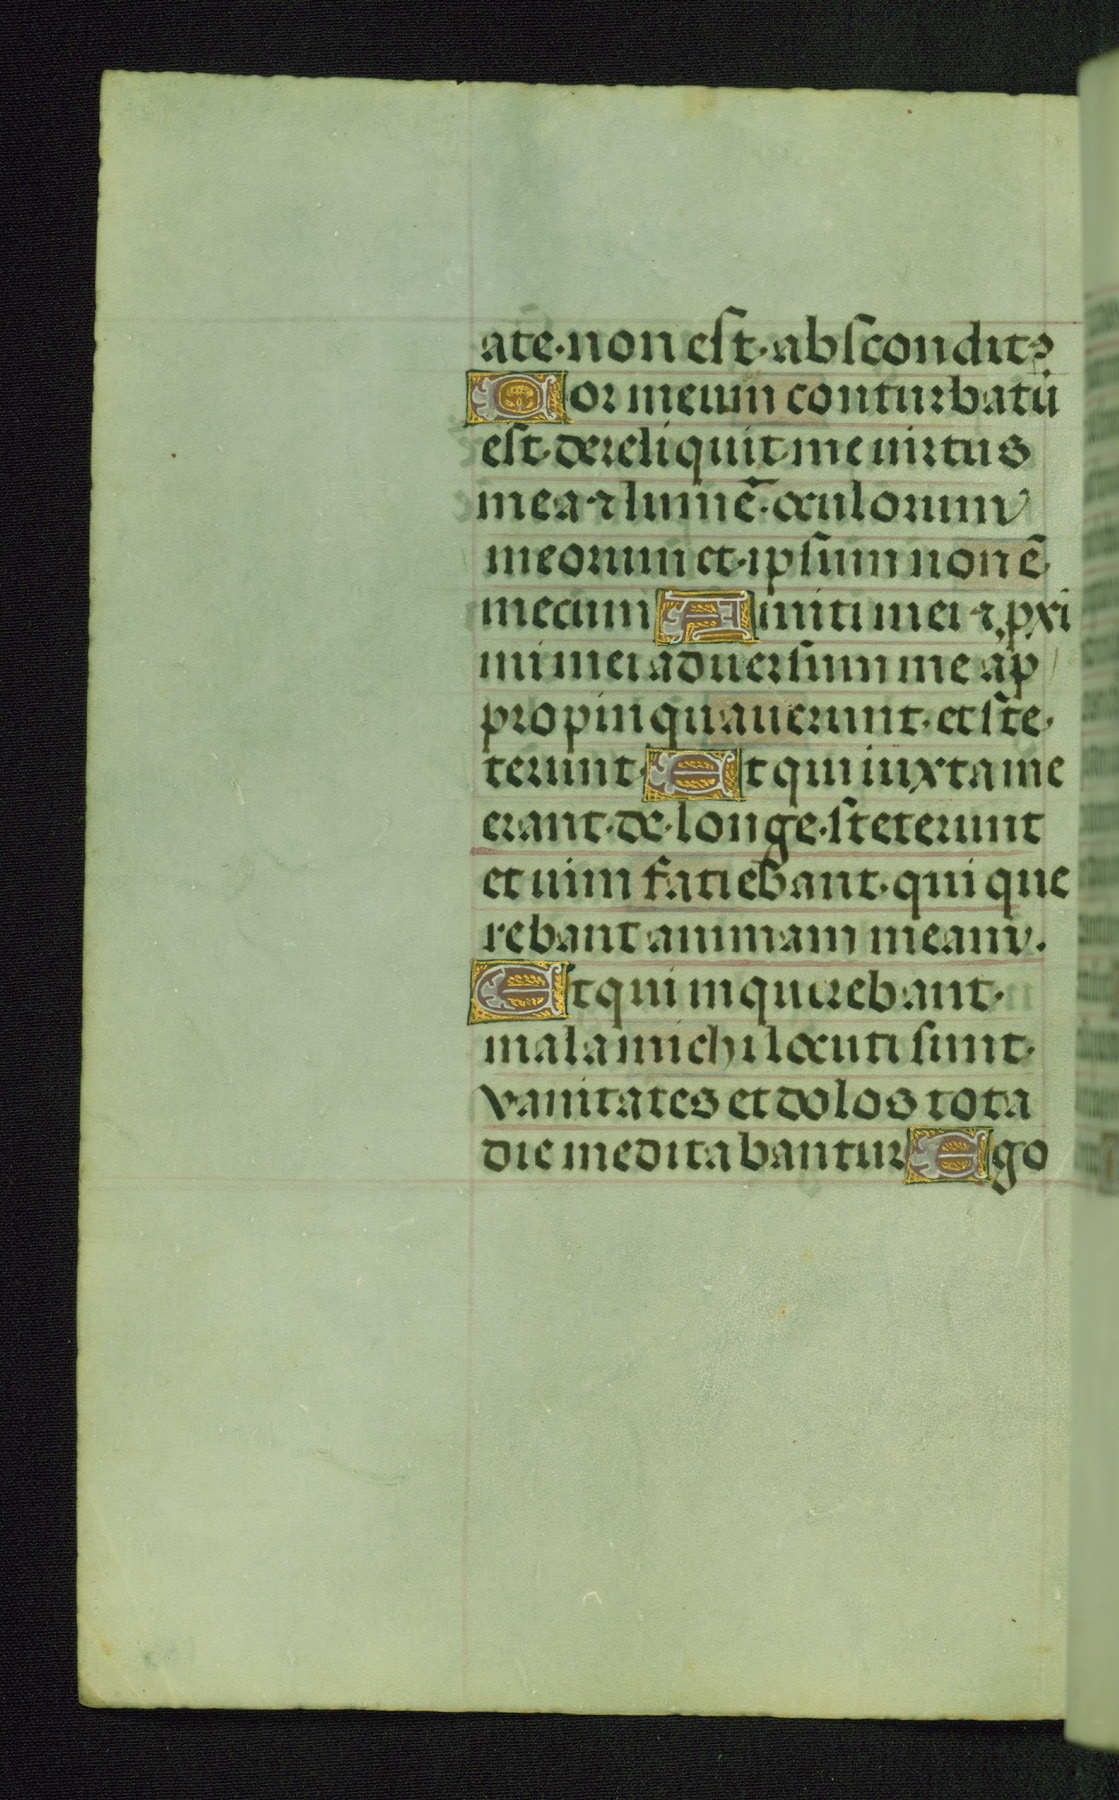 ate·non est·absconditꝰ
Cor meum conturbatū
est·dereliquit·me uirtus
mea·⁊ lumē·oculorum
meorum et·ipsum non ē
mecum Amiti mei ⁊ ꝓxi
mi mei aduersum me ap
propinquauerunt·et ste·
terunt·Et qui iuxta me
erant·de·longe·steterunt
et uim fatiebant·qui que
rebant animam meam.
Et qui inquirebant·
mala michi locuti sunt·
vanitates et dolos tota
die meditabantur Ego